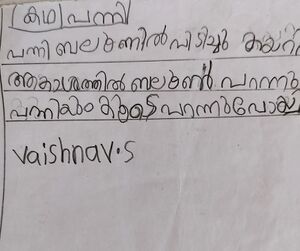 (കഥ) പന്നി
പന്നി ബലൂണിൽ പിടിച്ചു കയറി
ആകാശത്തിൽ ബലൂൺ പറന്നു
പന്നിയും കൂടെ പറന്നുപോയി
vaishnav.s